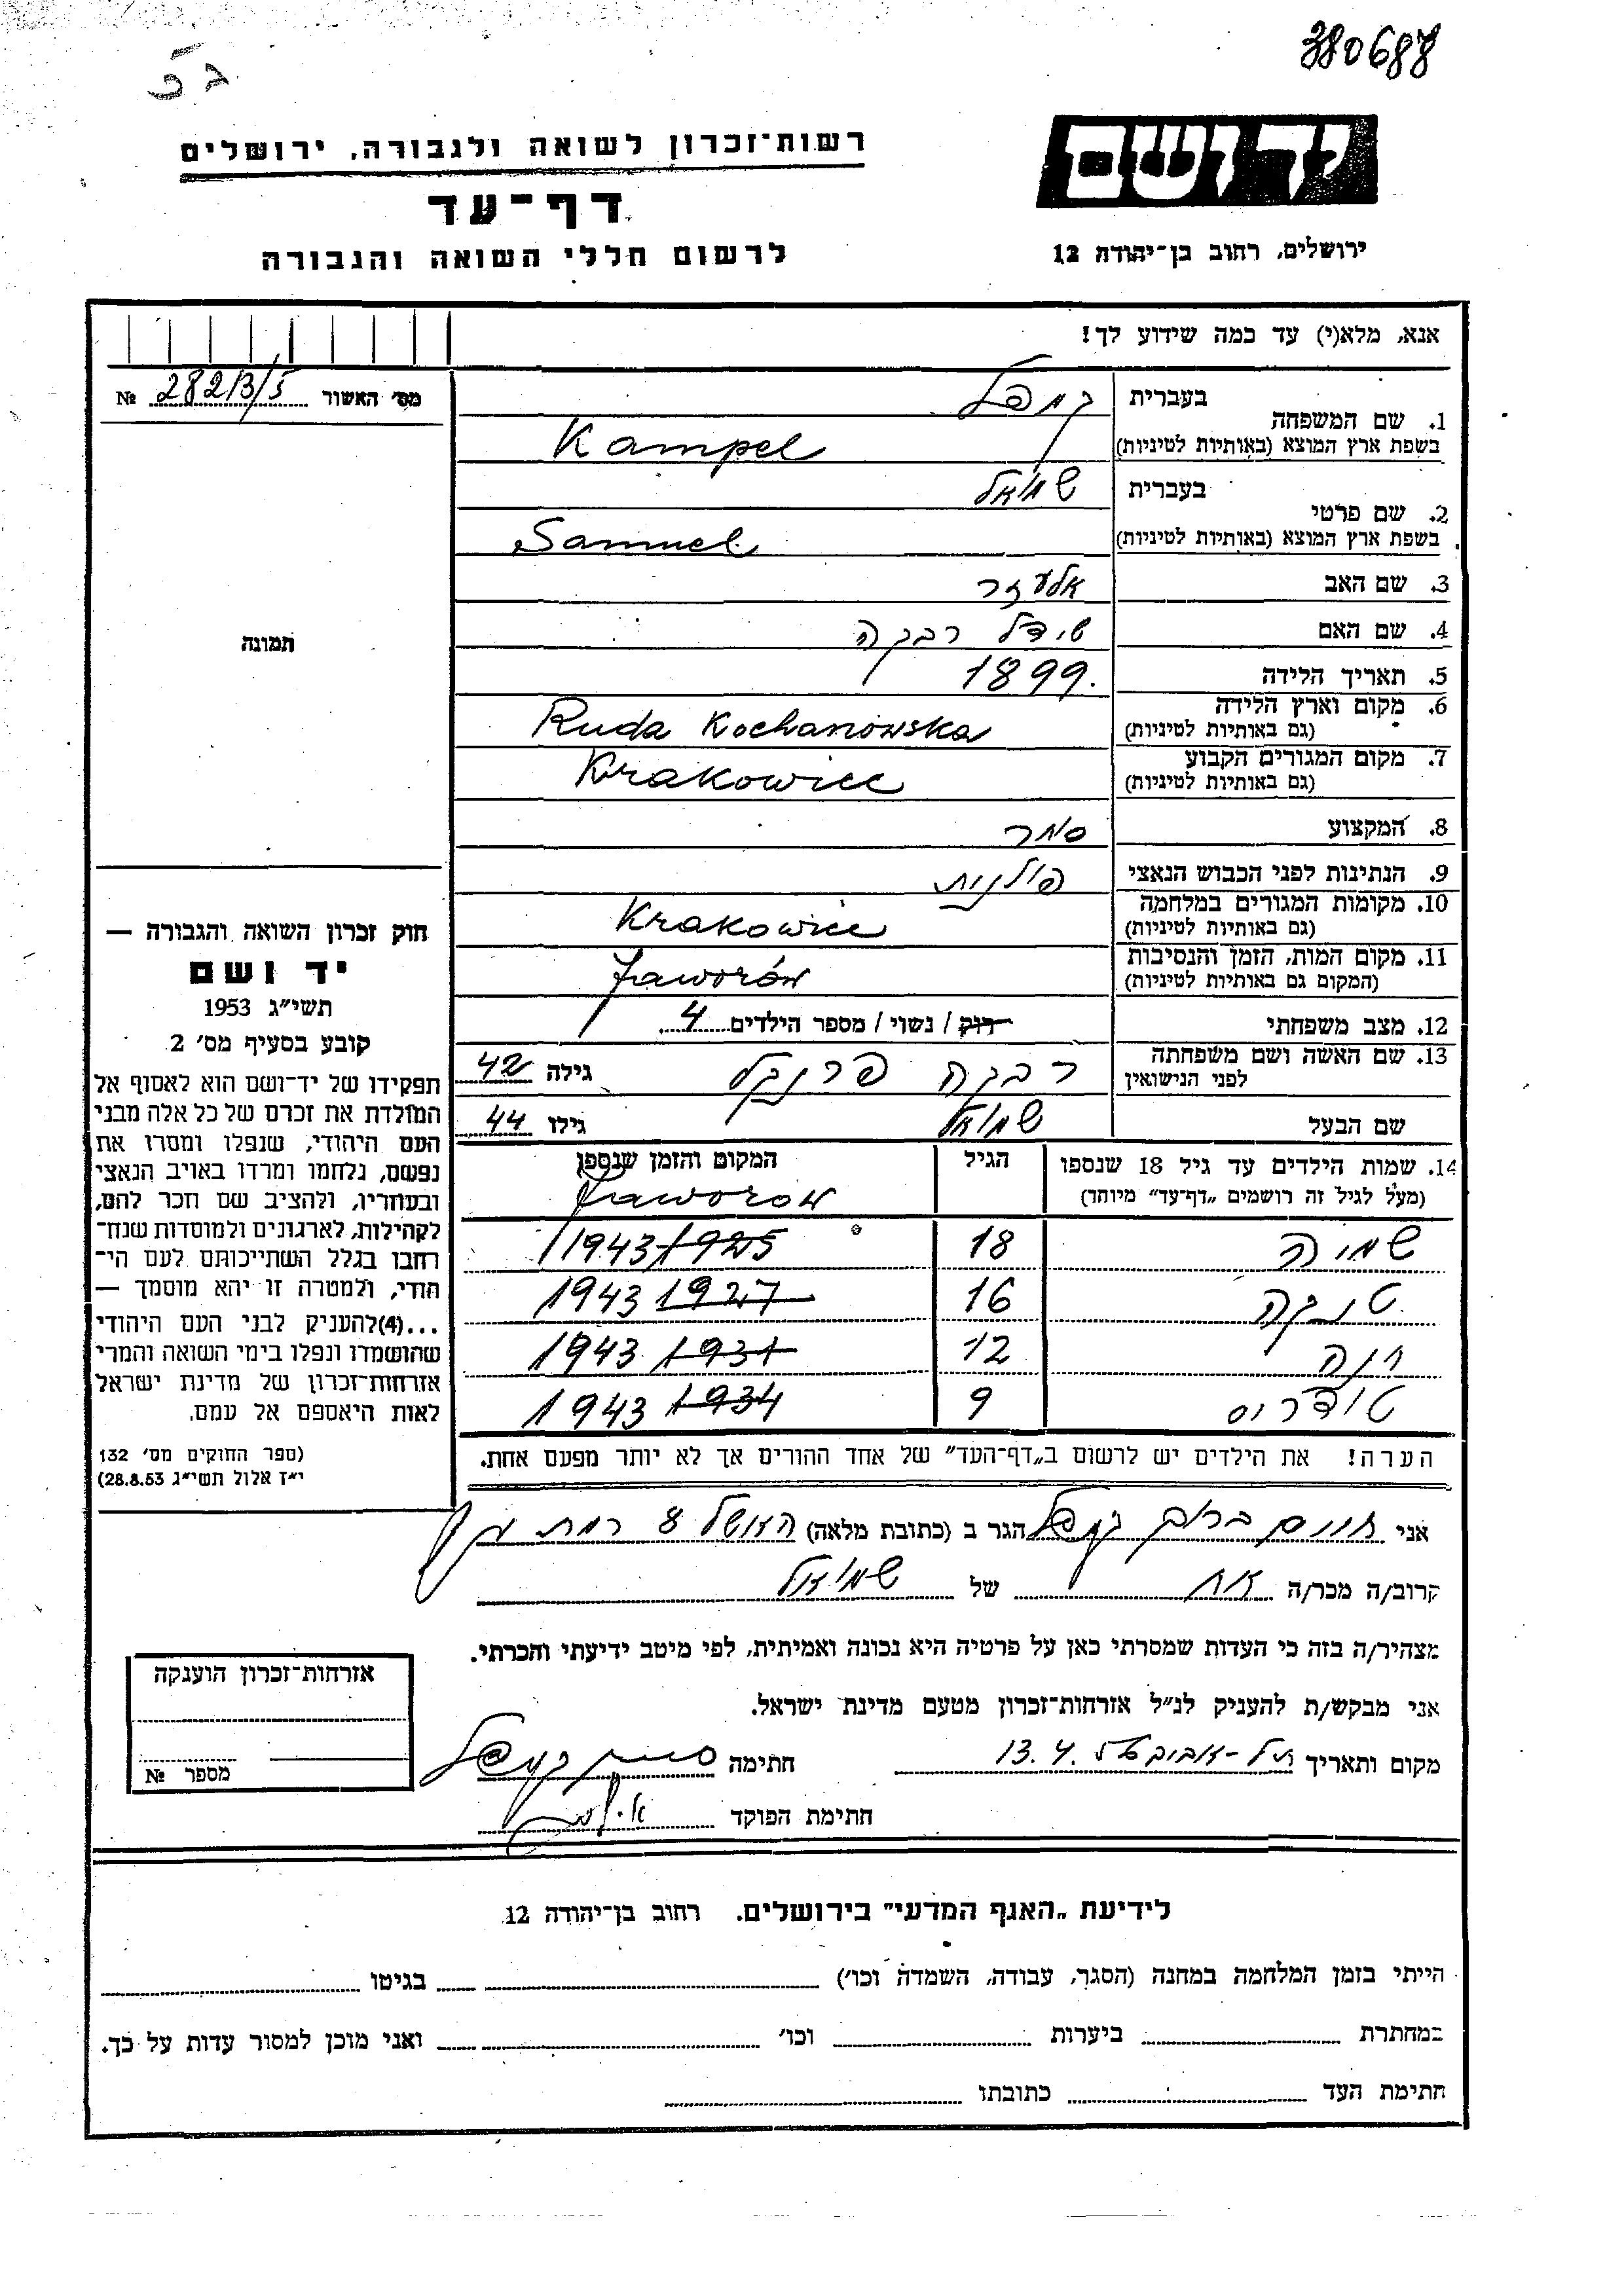 380687
רשות־זכרון לשואה ולגבורה, ירושלים
יד ושם
דף־עד
לרשום חללי השואה והגבורה
ירושלים, רחוב בן־יהודה 12
אנא, מלא(י) עד כמה שידוע לך!
מס' האשור 282/3/5 №
1. שם המשפחה
בעברית קמפל
בשפת ארץ המוצא (באותיות לטיניות) Kampel
2. שם פרטי
בעברית שמואל
בשפת ארץ המוצא (באותיות לטיניות) Samuel
3. שם האב אלעזר
4. שם האם שינדל רבקה
5. תאריך הלידה 1899.
6. מקום וארץ הלידה
(גם באותיות לטיניות) Ruda Kochanowska
7. מקום המגורים הקבוע
(גם באותיות לטיניות) Krakowiec
8. המקצוע סוחר
9. הנתינות לפני הכבוש הנאצי פולנית
10. מקומות המגורים במלחמה
(גם באותיות לטיניות) Krakowiec
11. מקום המות, הזמן והנסיבות
(המקום גם באותיות לטיניות) Jaworów
12. מצב משפחתי רוק / נשוי / מספר הילדים 4
13. שם האשה ושם משפחתה
לפני הנישואין רבקה פרנקל גילה 42
שם הבעל שמואל גילו 44
14. שמות הילדים עד גיל 18 שנספו הגיל המקום והזמן שנספו
(מעל לגיל זה רושמים „דף־עד" מיוחד) Jaworow
18 1925 1943
16 1927 1943
12 1931 1943
טודרוס 9 1934 1943
הערה! את הילדים יש לרשום ב„דף־העד" של אחד ההורים אך לא יותר מפעם אחת.
תמונה
חוק זכרון השואה והגבורה —
יד ושם
תשי"ג 1953
קובע בסעיף מס' 2
תפקידו של יד־ושם הוא לאסוף אל
המולדת את זכרם של כל אלה מבני
העם היהודי, שנפלו ומסרו את
נפשם, נלחמו ומרדו באויב הנאצי
ובעוזריו, ולהציב שם וזכר להם,
לקהילות, לארגונים ולמוסדות שנח־
רבו בגלל השתייכותם לעם הי־
הודי, ולמטרה זו יהא מוסמך —
...(4)להעניק לבני העם היהודי
שהושמדו ונפלו בימי השואה והמרי
אזרחות־זכרון של מדינת ישראל
לאות היאספם אל עמם.
(ספר החוקים מס' 132
י"ז אלול תשי"ג 28.8.53)
אני חיים ברוך קמפל הגר ב (כתובת מלאה) האשל 8 רמת גן
קרוב/ה מכר/ה אח של שמואל
מצהיר/ה בזה כי העדות שמסרתי כאן על פרטיה היא נכונה ואמיתית, לפי מיטב ידיעתי והכרתי.
אני מבקש/ת להעניק לנ"ל אזרחות־זכרון מטעם מדינת ישראל.
מקום ותאריך תל-אביב 13.4. חתימה קמפל
חתימת הפוקד
אזרחות־זכרון הוענקה
מספר №
לידיעת „האגף המדעי" בירושלים. רחוב בן־יהודה 12
הייתי בזמן המלחמה במחנה (הסגר, עבודה, השמדה וכו') בגיטו
במחתרת ביערות וכו' ואני מוכן למסור עדות על כך.
חתימת העד כתובתו